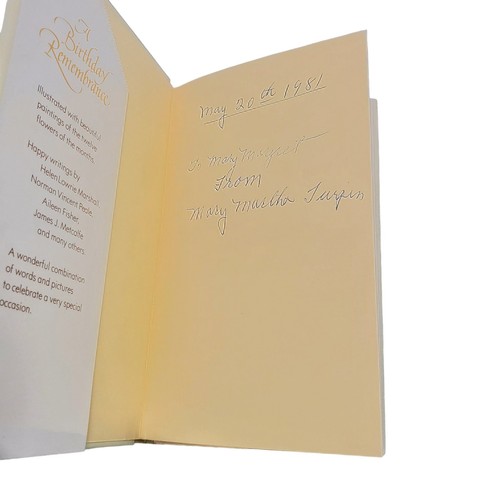 A
Birthday
Remembrance
Illustrated with beautiful
paintings of the twelve
flowers of the months.
Happy writings by
Helen Lowrie Marshall,
Norman Vincent Peale,
Aileen Fisher,
James J. Metcalfe
and many others.
A wonderful combination
of words and pictures
to celebrate a very special
occasion.
May 20th 1981
To Mary Margaret
From
Mary Martha Turpin